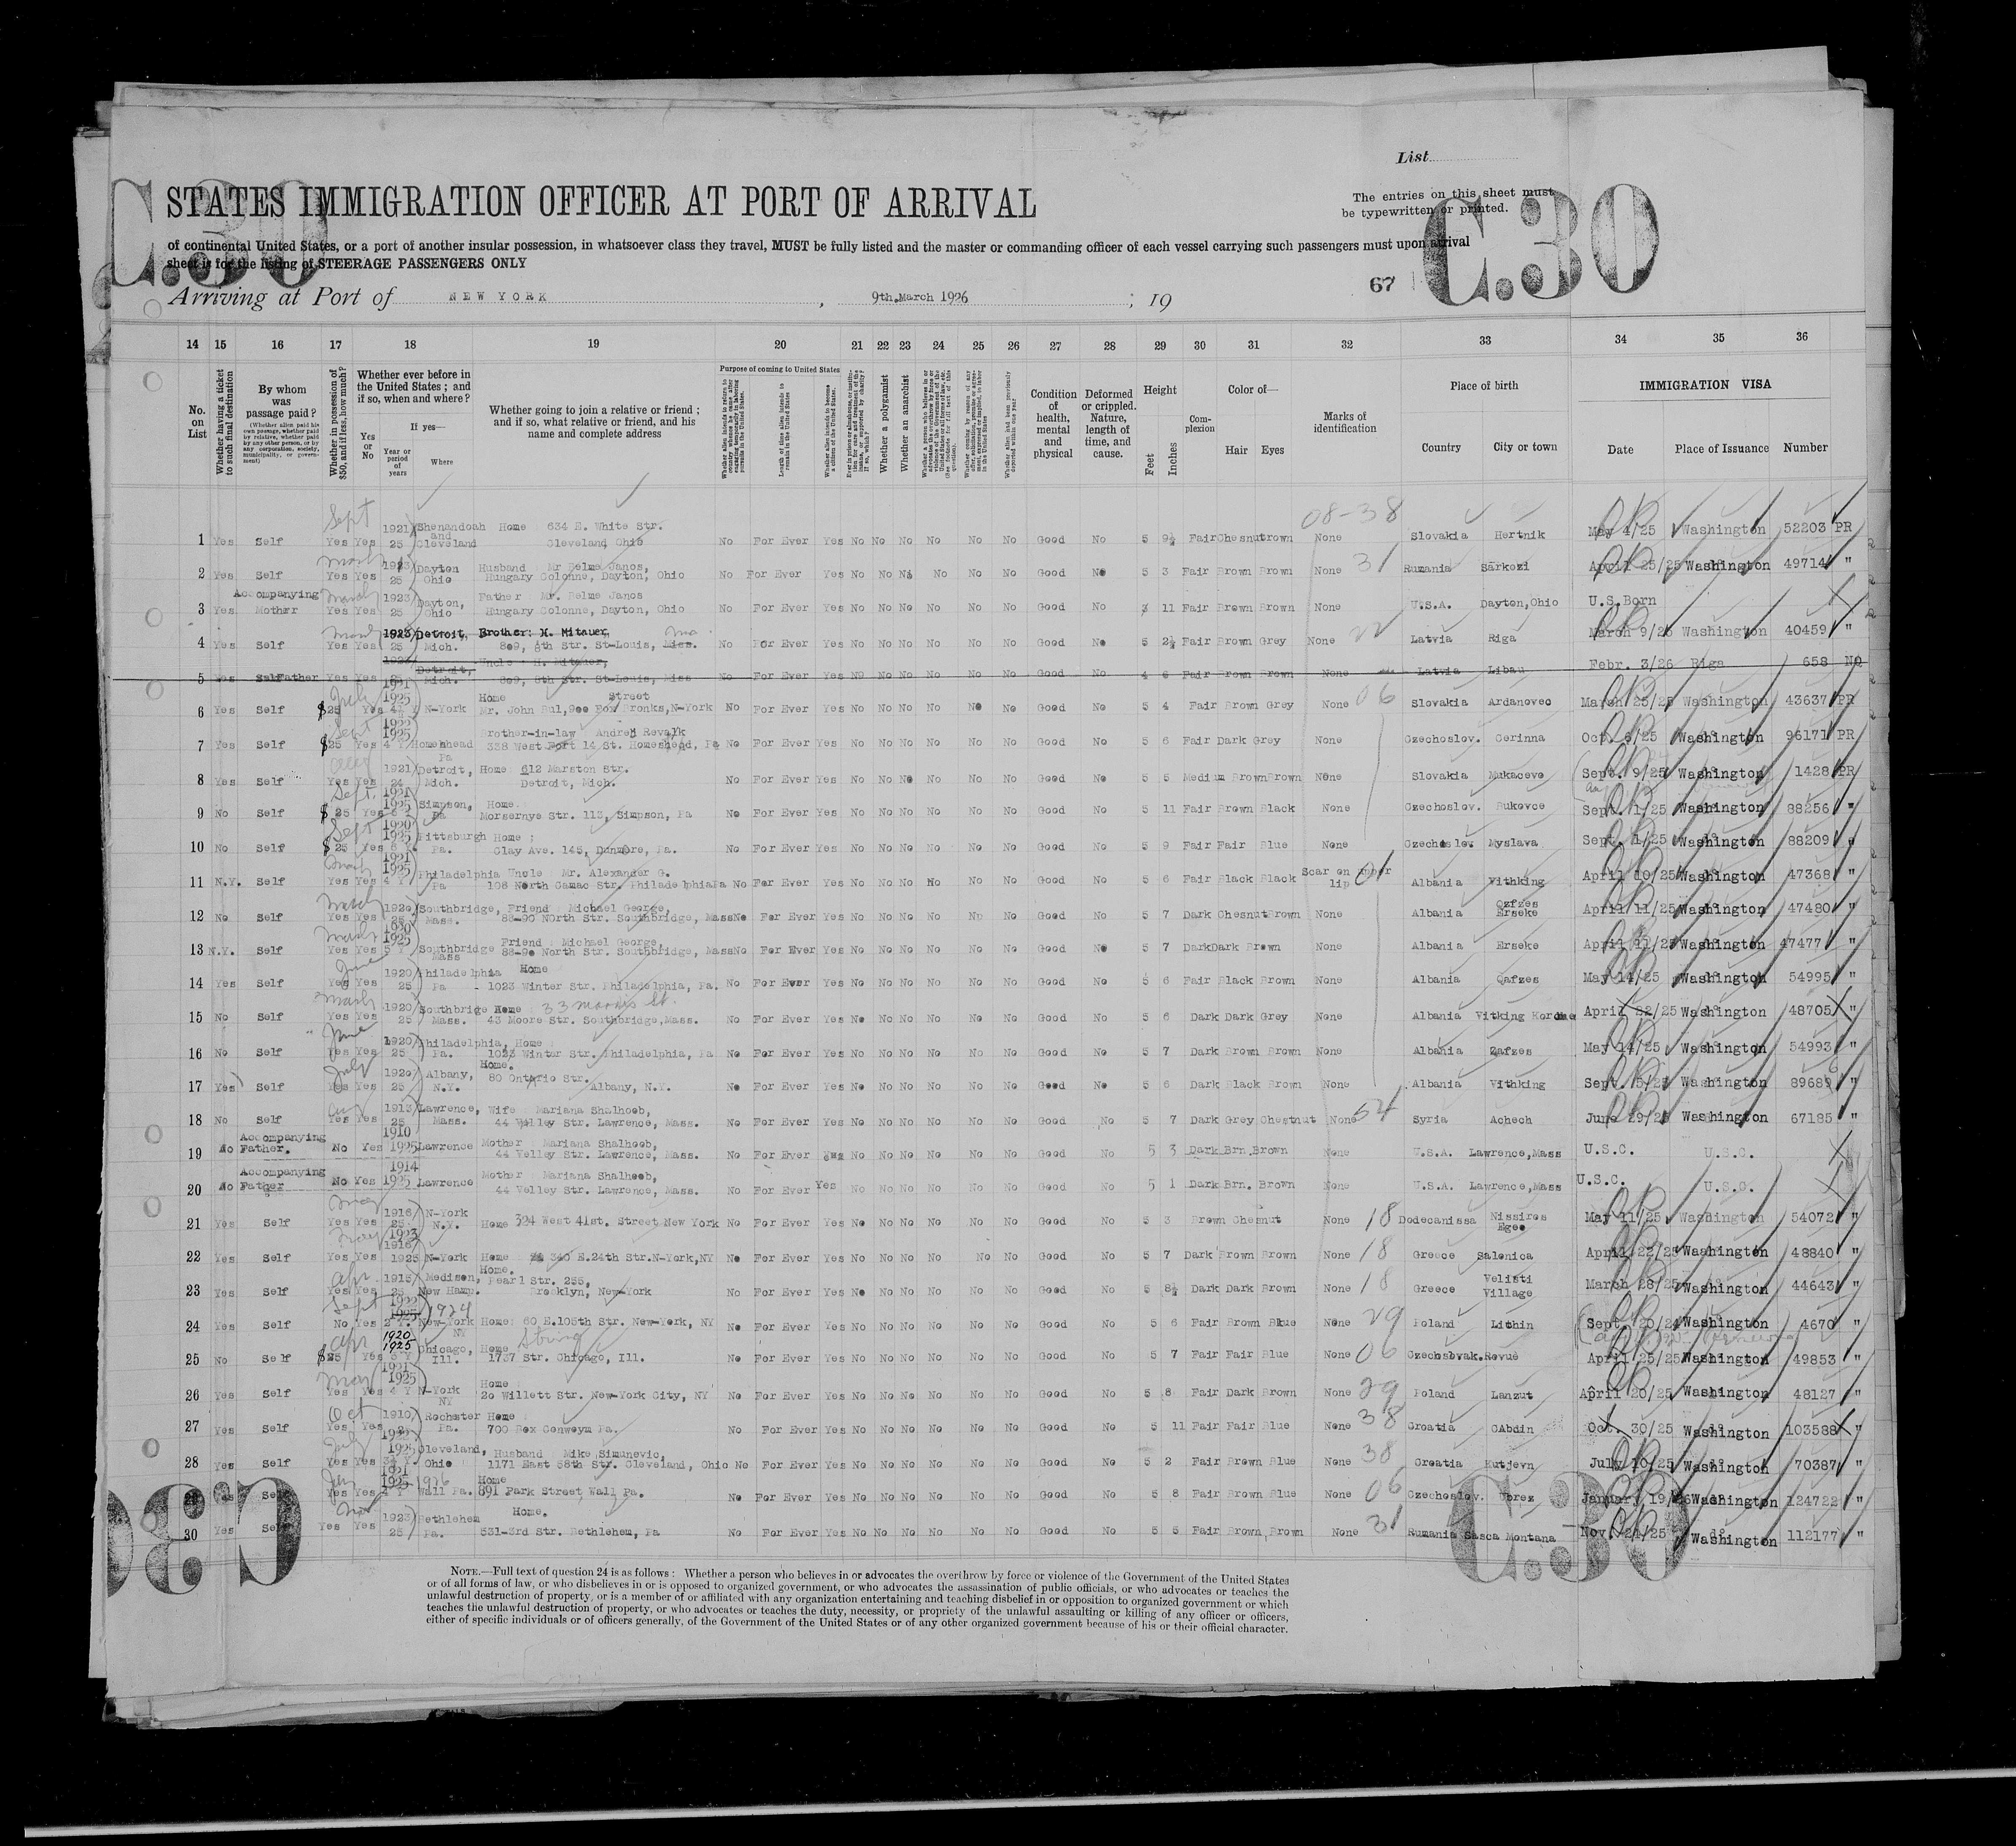 List
C.30
C.30
STATES IMMIGRATION OFFICER AT PORT OF ARRIVAL
The entries on this sheet must
be typewritten or printed.
of continental United States, or a port of another insular possession, in whatsoever class they travel, MUST be fully listed and the master or commanding officer of each vessel carrying such passengers must upon arrival
sheet is for the listing of STEERAGE PASSENGERS ONLY
67
Arriving at Port of NEW YORK , 9th.March 1926 ; 19
14 15 16 17 18 19 20 21 22 23 24 25 26 27 28 29 30 31 32 33 34 35 36
No. on List
Whether having a ticket to such final destination
By whom was passage paid?
(Whether alien paid his own passage, whether paid by relative, whether paid by any other person, or by any corporation, society, municipality, or government)
Whether in possession of $50, and if less, how much?
Whether ever before in the United States; and if so, when and where?
Yes or No
If yes—
Year or period of years
Where
Whether going to join a relative or friend; and if so, what relative or friend, and his name and complete address
Purpose of coming to United States
Length of time alien intends to remain in the United States
Whether a polygamist
Whether an anarchist
Condition of health, mental and physical
Deformed or crippled. Nature, length of time, and cause.
Height
Feet Inches
Complexion
Color of—
Hair Eyes
Marks of identification
Place of birth
Country City or town
IMMIGRATION VISA
Date Place of Issuance Number
08-38
1 Yes Self Sept Yes Yes 1921 25 Shenandoah and Cleveland Home 634 E. White Str. Cleveland Ohio No For Ever Yes No No No No No No Good No 5 9½ Fair Chesnut rown None Slovakia Hertnik May 4/25 Washington 52203 PR
2 Yes Self Yes Yes 1923 25 Dayton Ohio Husband Mr Belme Janos, Hungary Colonne, Dayton, Ohio No For Ever Yes No No No No No No Good No 5 3 Fair Brown Brown None 31 Rumania Särkozi April 25/25 Washington 49714 "
3 Yes Accompanying Mother Yes Yes 1923 25 Dayton, Ohio Father Mr. Belme Janos Hungary Colonne, Dayton, Ohio No For Ever Yes No No No No No No Good No 11 Fair Brown Brown None U.S.A. Dayton,Ohio U.S.Born
4 Yes Self Yes Yes 1923 25 Detroit, Mich. Brother: H. Mitauer, 809, 8th Str. St-Louis, Miss. No For Ever Yes No No No No No No Good No 5 2½ Fair Brown Grey None 22 Latvia Riga March 9/25 Washington 40459 "
5 Yes Self Father Yes Yes Detroit, Mich. Uncle H. Mitauer, 809, 8th Str. St-Louis, Miss No For Ever Yes No No No No No No Good No 4 6 Fair Brown Brown None Latvia Libau Febr. 3/26 Riga 658 NQ
6 Yes Self July $25 Yes 1921 1925 N-York Home Street Mr. John Bul,900 Fox Bronks,N-York No For Ever Yes No No No No No No Good No 5 4 Fair Brown Grey None 06 Slovakia Ardanovec March 25/25 Washington 43637 PR
7 Yes Self Sept $25 Yes 1922 1925 4 Y Homehead Pa Brother-in-law Andrej Revalk 338 West Fort 14 St. Homeshead, Pa No For Ever Yes No No No No No No Good No 5 6 Fair Dark Grey None Czechoslov. Cerinna Oct. 6/25 Washington 96171 PR
8 Yes Self Yes Yes 1921 24 Detroit, Mich. Home 612 Marston Str. Detroit, Mich. No For Ever Yes No No No No No No Good No 5 5 Medium Brown Brown None Slovakia Mukacevo Sept. 9/25 Washington 1428 PR
9 No Self Sept. $25 Yes 1921 1925 Simpson, Pa Home Morsernye Str. 113, Simpson, Pa No For Ever Yes No No No No No No Good No 5 11 Fair Brown Black None Czechoslov. Bukovce Sept. 1/25 Washington 88256 "
10 No Self Sept $25 Yes 1920 1925 Pittsburgh Pa. Home : Clay Ave. 145, Dunmore, Pa. No For Ever Yes No No No No No No Good No 5 9 Fair Fair Blue None Czechoslov Myslava Sept. 1/25 Washington 88209 "
11 N.Y. Self Yes Yes 1921 1925 4 Y Philadelphia Pa Uncle Mr. Alexander G. 108 North Camac Str. Philadelphia Pa No For Ever Yes No No No No No No Good No 5 6 Fair Black Black Scar on upper lip 01 Albania Vithking April 10/25 Washington 47368 "
12 No Self March Yes Yes 1920 25 Southbridge, Mass. Friend Michael George, 88-90 North Str. Southbridge, Mass No For Ever Yes No No No No No No Good No 5 7 Dark Chesnut Brown None Albania Qafzes Erseke April 11/25 Washington 47480 "
13 N.Y. Self Yes Yes 1920 1925 5 Y Southbridge Mass Friend Michael George, 88-90 North Str. Southbridge, Mass No For Ever Yes No No No No No No Good No 5 7 Dark Dark Brown None Albania Erseke April 11/25 Washington 47477 "
14 Yes Self June Yes Yes 1920 25 Philadelphia Pa Home 1023 Winter Str. Philadelphia, Pa. No For Ever Yes No No No No No No Good No 5 6 Fair Black Brown None Albania Qafzes May 14/25 Washington 54995 "
15 No Self March Yes Yes 1920 25 Southbridge Mass. Home 33 Morris St. 43 Moore Str. Southbridge,Mass. No For Ever Yes No No No No No No Good No 5 6 Dark Dark Grey None Albania Vitking April 22/25 Washington 48705 "
16 No Self June Yes Yes 1920 25 Philadelphia, Pa. Home 1023 Winter Str. Philadelphia, Pa No For Ever Yes No No No No No No Good No 5 7 Dark Brown Brown None Albania Zafzes May 14/25 Washington 54993 "
17 Yes Self July Yes Yes 1920 25 Albany, N.Y. Home. 80 Ontario Str. Albany, N.Y. No For Ever Yes No No No No No No Good No 5 6 Dark Black Brown None Albania Vithking Sept. 5/25 Washington 89689 "
18 No Self Aug Yes Yes 1913 25 Lawrence, Mass. Wife Mariana Shalhoeb, 44 Velley Str. Lawrence, Mass. No For Ever Yes No No No No No No Good No 5 7 Dark Grey Chestnut None 54 Syria Achech June 29/25 Washington 67185 "
19 No Accompanying Father. No Yes 1910 1925 Lawrence Mother Mariana Shalhoeb, 44 Velley Str. Lawrence, Mass. No For Ever Yes No No No No No No Good No 5 3 Dark Brn. Brown None U.S.A. Lawrence,Mass U.S.C. U.S.C.
20 No Accompanying Father No Yes 1914 1925 Lawrence Mother Mariana Shalhoeb, 44 Velley Str. Lawrence, Mass. No For Ever Yes No No No No No No Good No 5 1 Dark Brn. Brown None U.S.A. Lawrence,Mass U.S.C. U.S.C.
21 Yes Self May Yes Yes 1916 25 N-York N.Y. Home 324 West 41st. Street New York No For Ever Yes No No No No No No Good No 5 3 Brown Chesnut None 18 Dodecanissa Nissiros Egeo May 11/25 Washington 54072 "
22 Yes Self Yes Yes 1923 1916 1925 N-York Home 340 E.24th Str.N-York,NY No For Ever Yes No No No No No No Good No 5 7 Dark Brown Brown None 18 Greece Salonica April 22/25 Washington 48840 "
23 Yes Self Apr Yes Yes 1915 25 Medison, New Hamp. Home. Pearl Str. 255, Brooklyn, New-York No For Ever Yes No No No No No No Good No 5 8½ Dark Dark Brown None 18 Greece Velisti Village March 28/25 Washington 44643 "
24 Yes Self Sept No Yes 1922 1925 1924 2 Y. New-York NY Home: 60 E.105th Str. New-York, NY No For Ever Yes No No No No No No Good No 5 6 Fair Brown Blue None 29 Poland Lithin Sept. 20/24 Washington 4670 "
25 No Self Apr $25 Yes 1920 1925 Chicago, Ill. Home 1737 Str. Chicago, Ill. No For Ever Yes No No No No No No Good No 5 7 Fair Fair Blue None 06 Czechslovak. Revuè April 25/25 Washington 49853 "
26 Yes Self May Yes Yes 1921 1925 4 Y N-York NY Home 20 Willett Str. New-York City, NY No For Ever Yes No No No No No No Good No 5 8 Fair Dark Brown None 29 Poland Lanzut April 20/25 Washington 48127 "
27 Yes Self Oct Yes Yes 1910 Rochster Pa. Home 700 Box Conweym Pa. No For Ever Yes No No No No No No Good No 5 11 Fair Fair Blue None 38 Croatia OAbdin Oct. 30/25 Washington 103588 "
28 Yes Self July Yes Yes 1922 1925 Cleveland, Ohio Husband Mike Simunevic, 1171 East 58th Str. Cleveland, Ohio No For Ever Yes No No No No No No Good No 5 2 Fair Brown Blue None 38 Croatia Kutjevn July 10/25 Washington 70387 "
29 Yes Self Jan Yes Yes 1921 1925 1926 4 Y Wall Pa. Home 891 Park Street, Wall Pa. No For Ever Yes No No No No No No Good No 5 8 Fair Brown Blue None 06 Czechoslov. Ubrez January 19/26 Washington 124722 "
30 Yes Self Nov Yes Yes 1923 25 Bethlehem Pa. Home. 531-3rd Str. Bethlehem, Pa No For Ever Yes No No No No No No Good No 5 5 Fair Brown Brown None 31 Rumania Sasca Montana Nov. 21/25 Washington 112177 "
C.30
C.30
NOTE.—Full text of question 24 is as follows: Whether a person who believes in or advocates the overthrow by force or violence of the Government of the United States
or of all forms of law, or who disbelieves in or is opposed to organized government, or who advocates the assassination of public officials, or who advocates or teaches the
unlawful destruction of property, or is a member of or affiliated with any organization entertaining and teaching disbelief in or opposition to organized government or which
teaches the unlawful destruction of property, or who advocates or teaches the duty, necessity, or propriety of the unlawful assaulting or killing of any officer or officers,
either of specific individuals or of officers generally, of the Government of the United States or of any other organized government because of his or their official character.